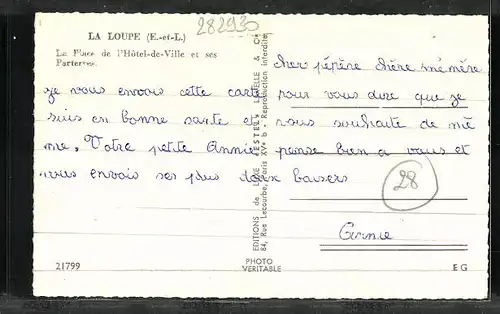 LA LOUPE (E.-et-L.)
282930
La Place de l'Hôtel-de-Ville et ses
Parterres.
cher pépère chère mémère
je vous envois cette carte pour vous dire que je
suis en bonne santé et vous souhaite de mê
me. Votre petite Annie pense bien a vous et
vous envois ses plus doux baisers
28
Annie
EDITIONS de LUXE "ESTEL" LAVELLE & Cie
84, Rue Lecourbe, Paris XVe • Reproduction interdite
21799
PHOTO
VERITABLE
E G